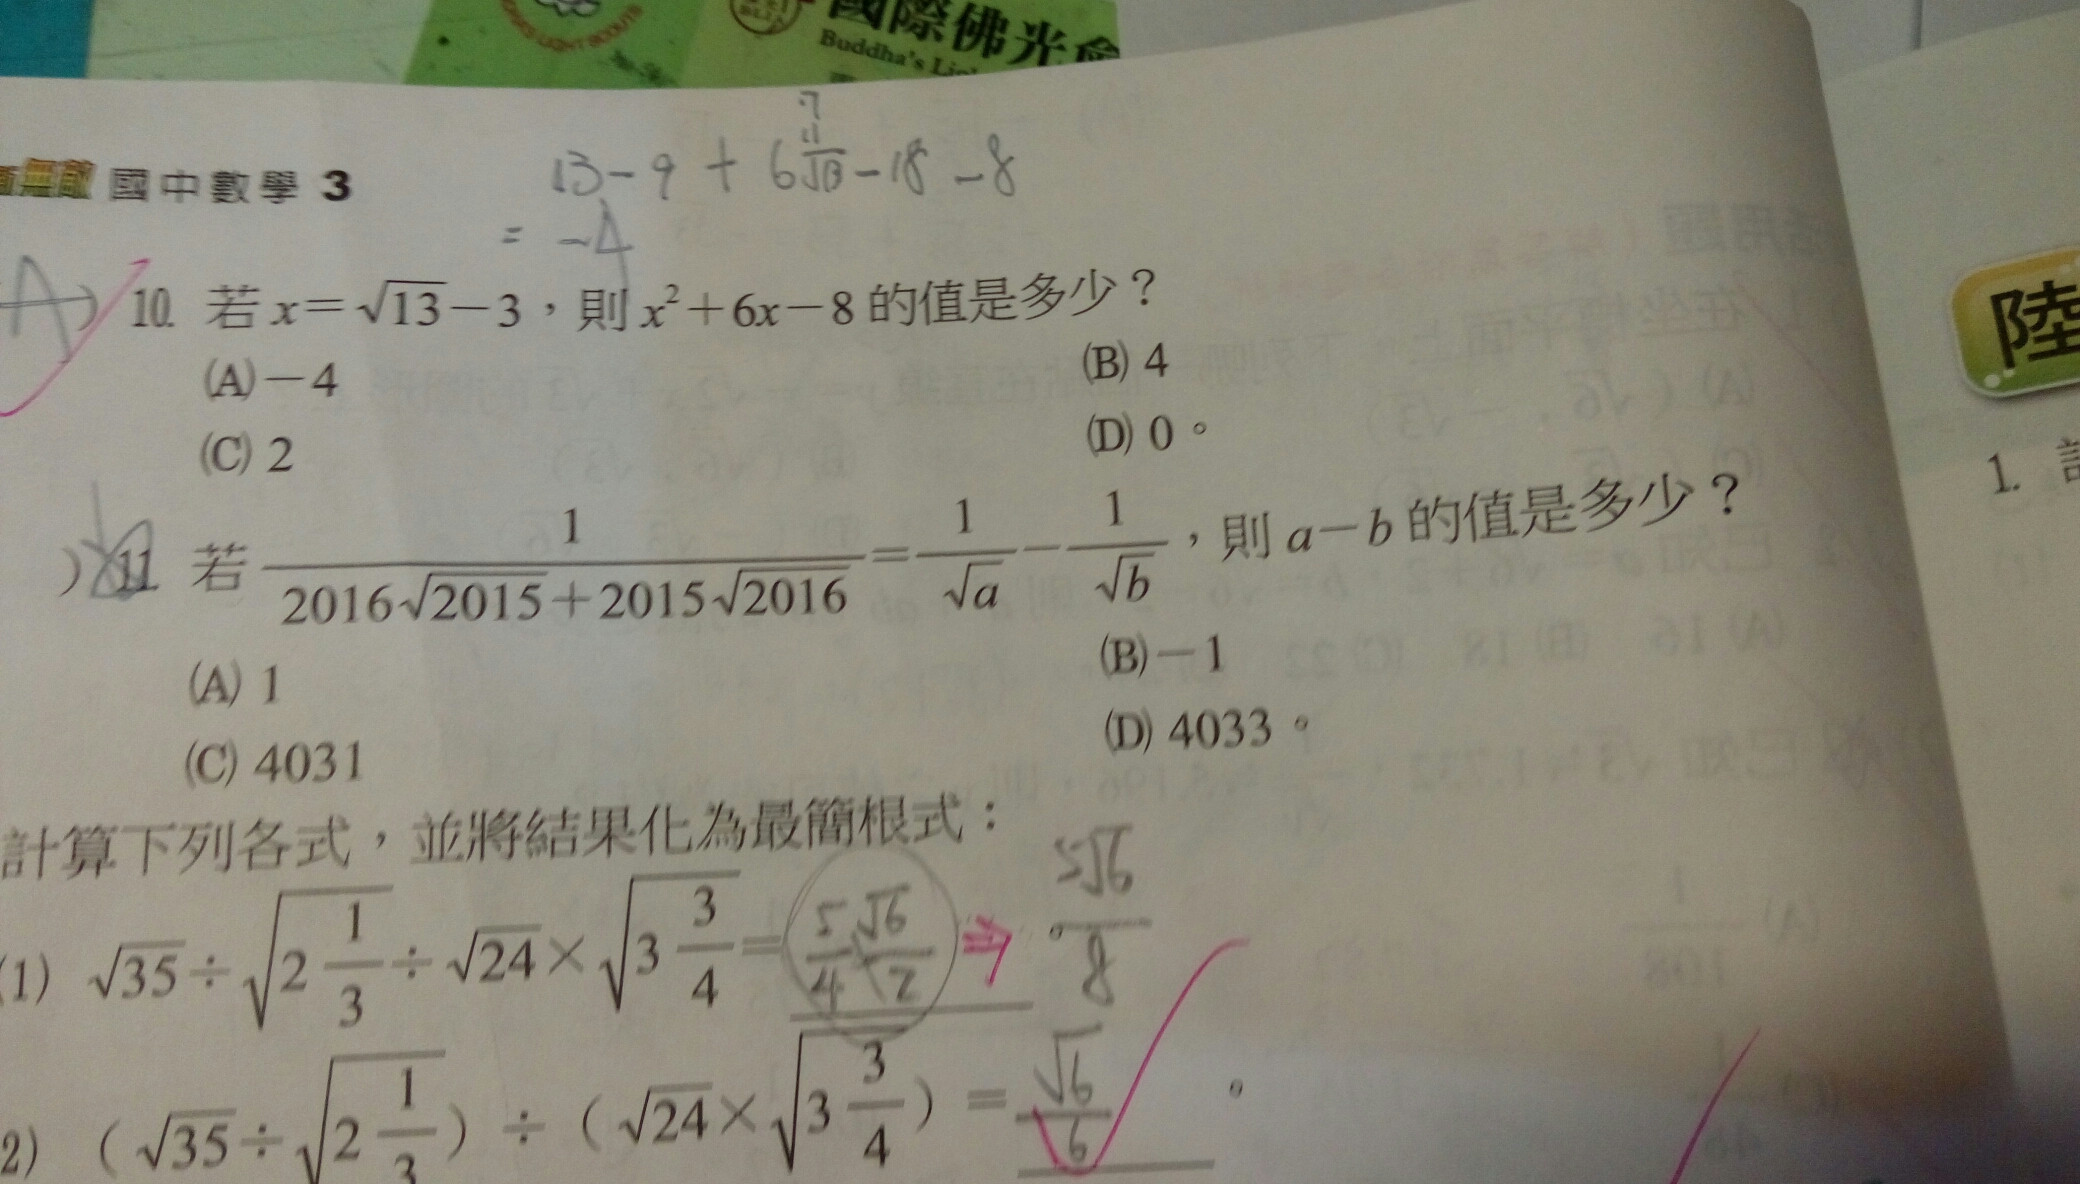 國際佛光會
Buddha's Li
國中數學 3
13-9+6√13-18-8
= -4
A
10. 若 x=√13-3，則 x²+6x-8 的值是多少？
(A) -4 (B) 4
(C) 2 (D) 0。
11. 若 1/(2016√2015+2015√2016) = 1/√a - 1/√b，則 a-b 的值是多少？
(A) 1 (B) -1
(C) 4031 (D) 4033。
計算下列各式，並將結果化為最簡根式：
(1) √35÷√(2 1/3)÷√24×√(3 3/4)= 5/4 √6/2 ⇒ 5√6/8 。
2) (√35÷√(2 1/3))÷(√24×√(3 3/4))= √6/6 。
陸
1.